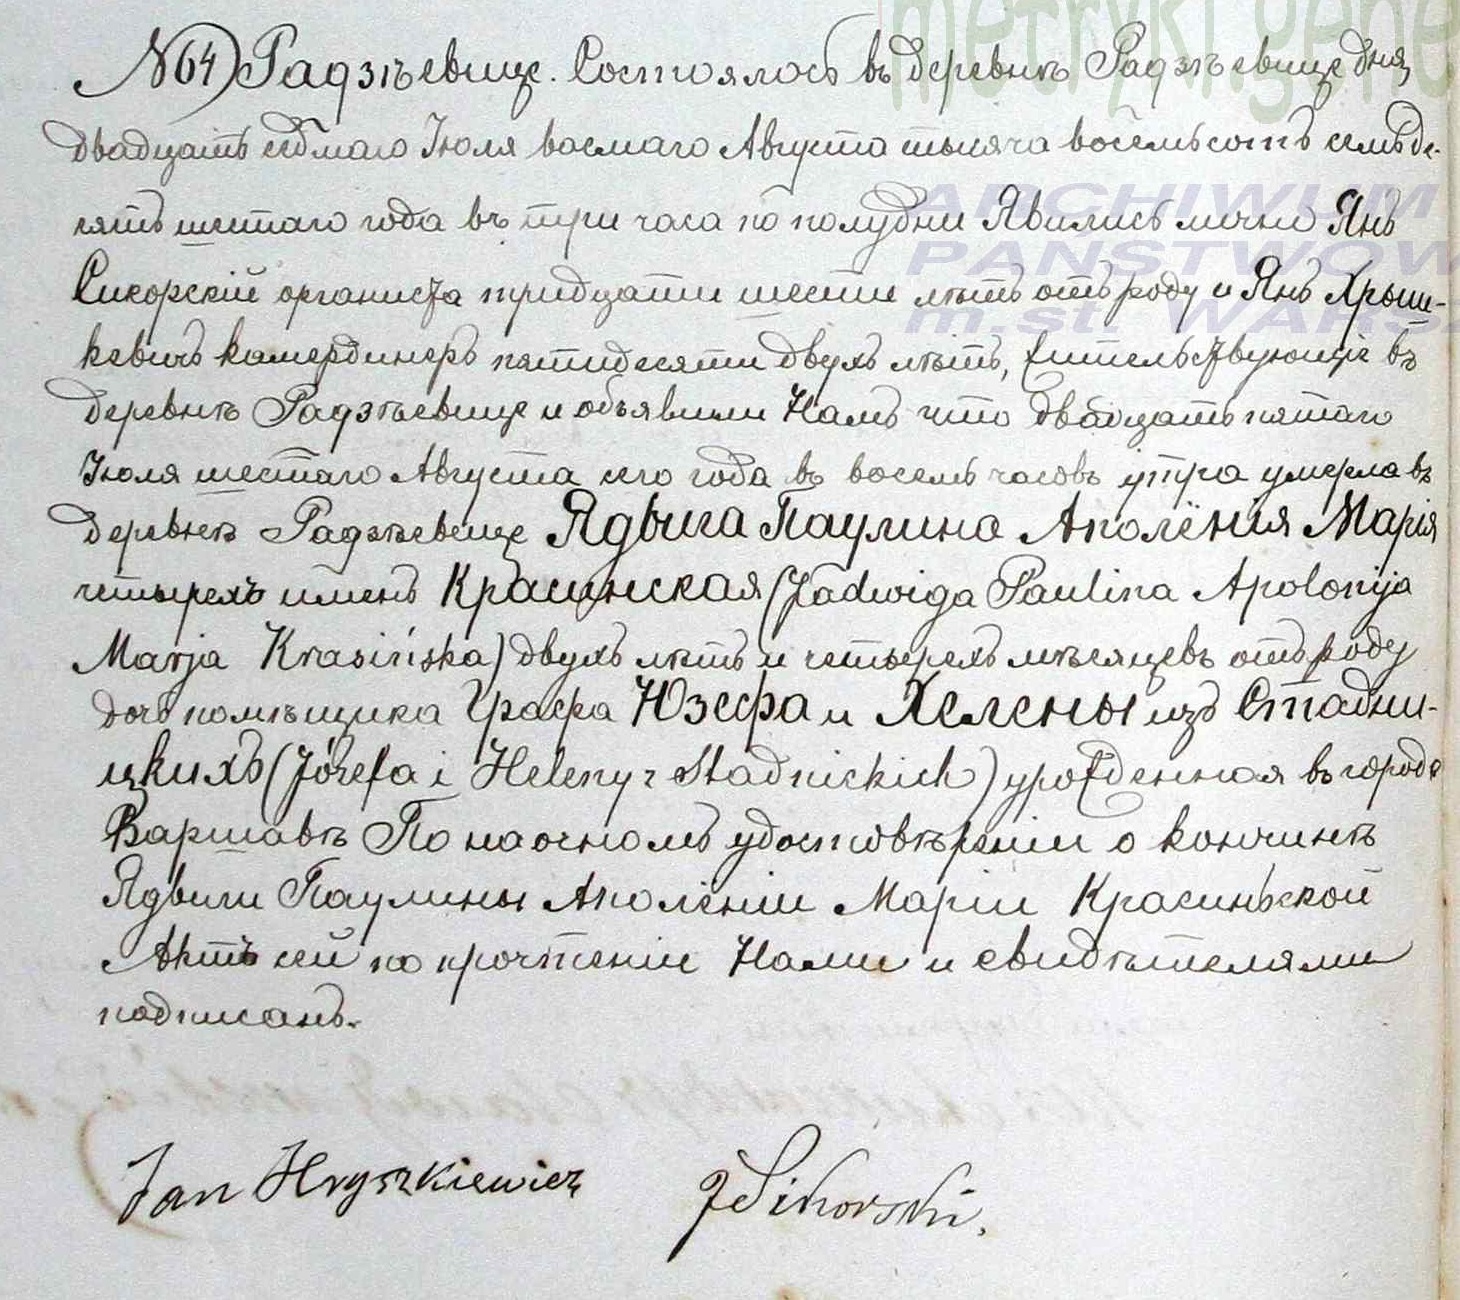 metryki.gene
ARCHIWUM
PANSTWOW
m.st. WARS
N64) Радзѣевице. Состоялось въ деревнѣ Радзѣевице дня
двадцать седмаго Іюля восмаго Августа тысяча восемьсотъ семьде-
сятъ шестаго года въ три часа по полудни Явились лично Янъ
Сикорскій органиста тридцати шести лѣтъ отъ роду и Янъ Хрыш-
кевичъ камердинеръ пятидесяти двухъ лѣтъ, жительствующіе въ
деревнѣ Радзѣевице и объявили Намъ что двадцать пятаго
Іюля шестаго Августа сего года въ восемь часовъ утра умерла въ
деревнѣ Радзѣевице Ядвига Паулина Аполёнія Марія
четырехъ именъ Красинская (Jadwiga Paulina Apolonija
Marja Krasińska) двухъ лѣтъ и четырехъ мѣсяцевъ отъ роду
дочь помѣщика Графа Юзефа и Хелены изъ Стадни-
цкихъ (Józefa i Heleny z Stadnickich) урожденная въ городѣ
Варшавѣ По наочномъ удостовѣреніи о кончинѣ
Ядвиги Паулины Аполёніи Маріи Красинѣской
Актъ сей по прочтеніи Нами и свидѣтелями
подписанъ.
Jan Hryszkiewicz
J Sikorski.